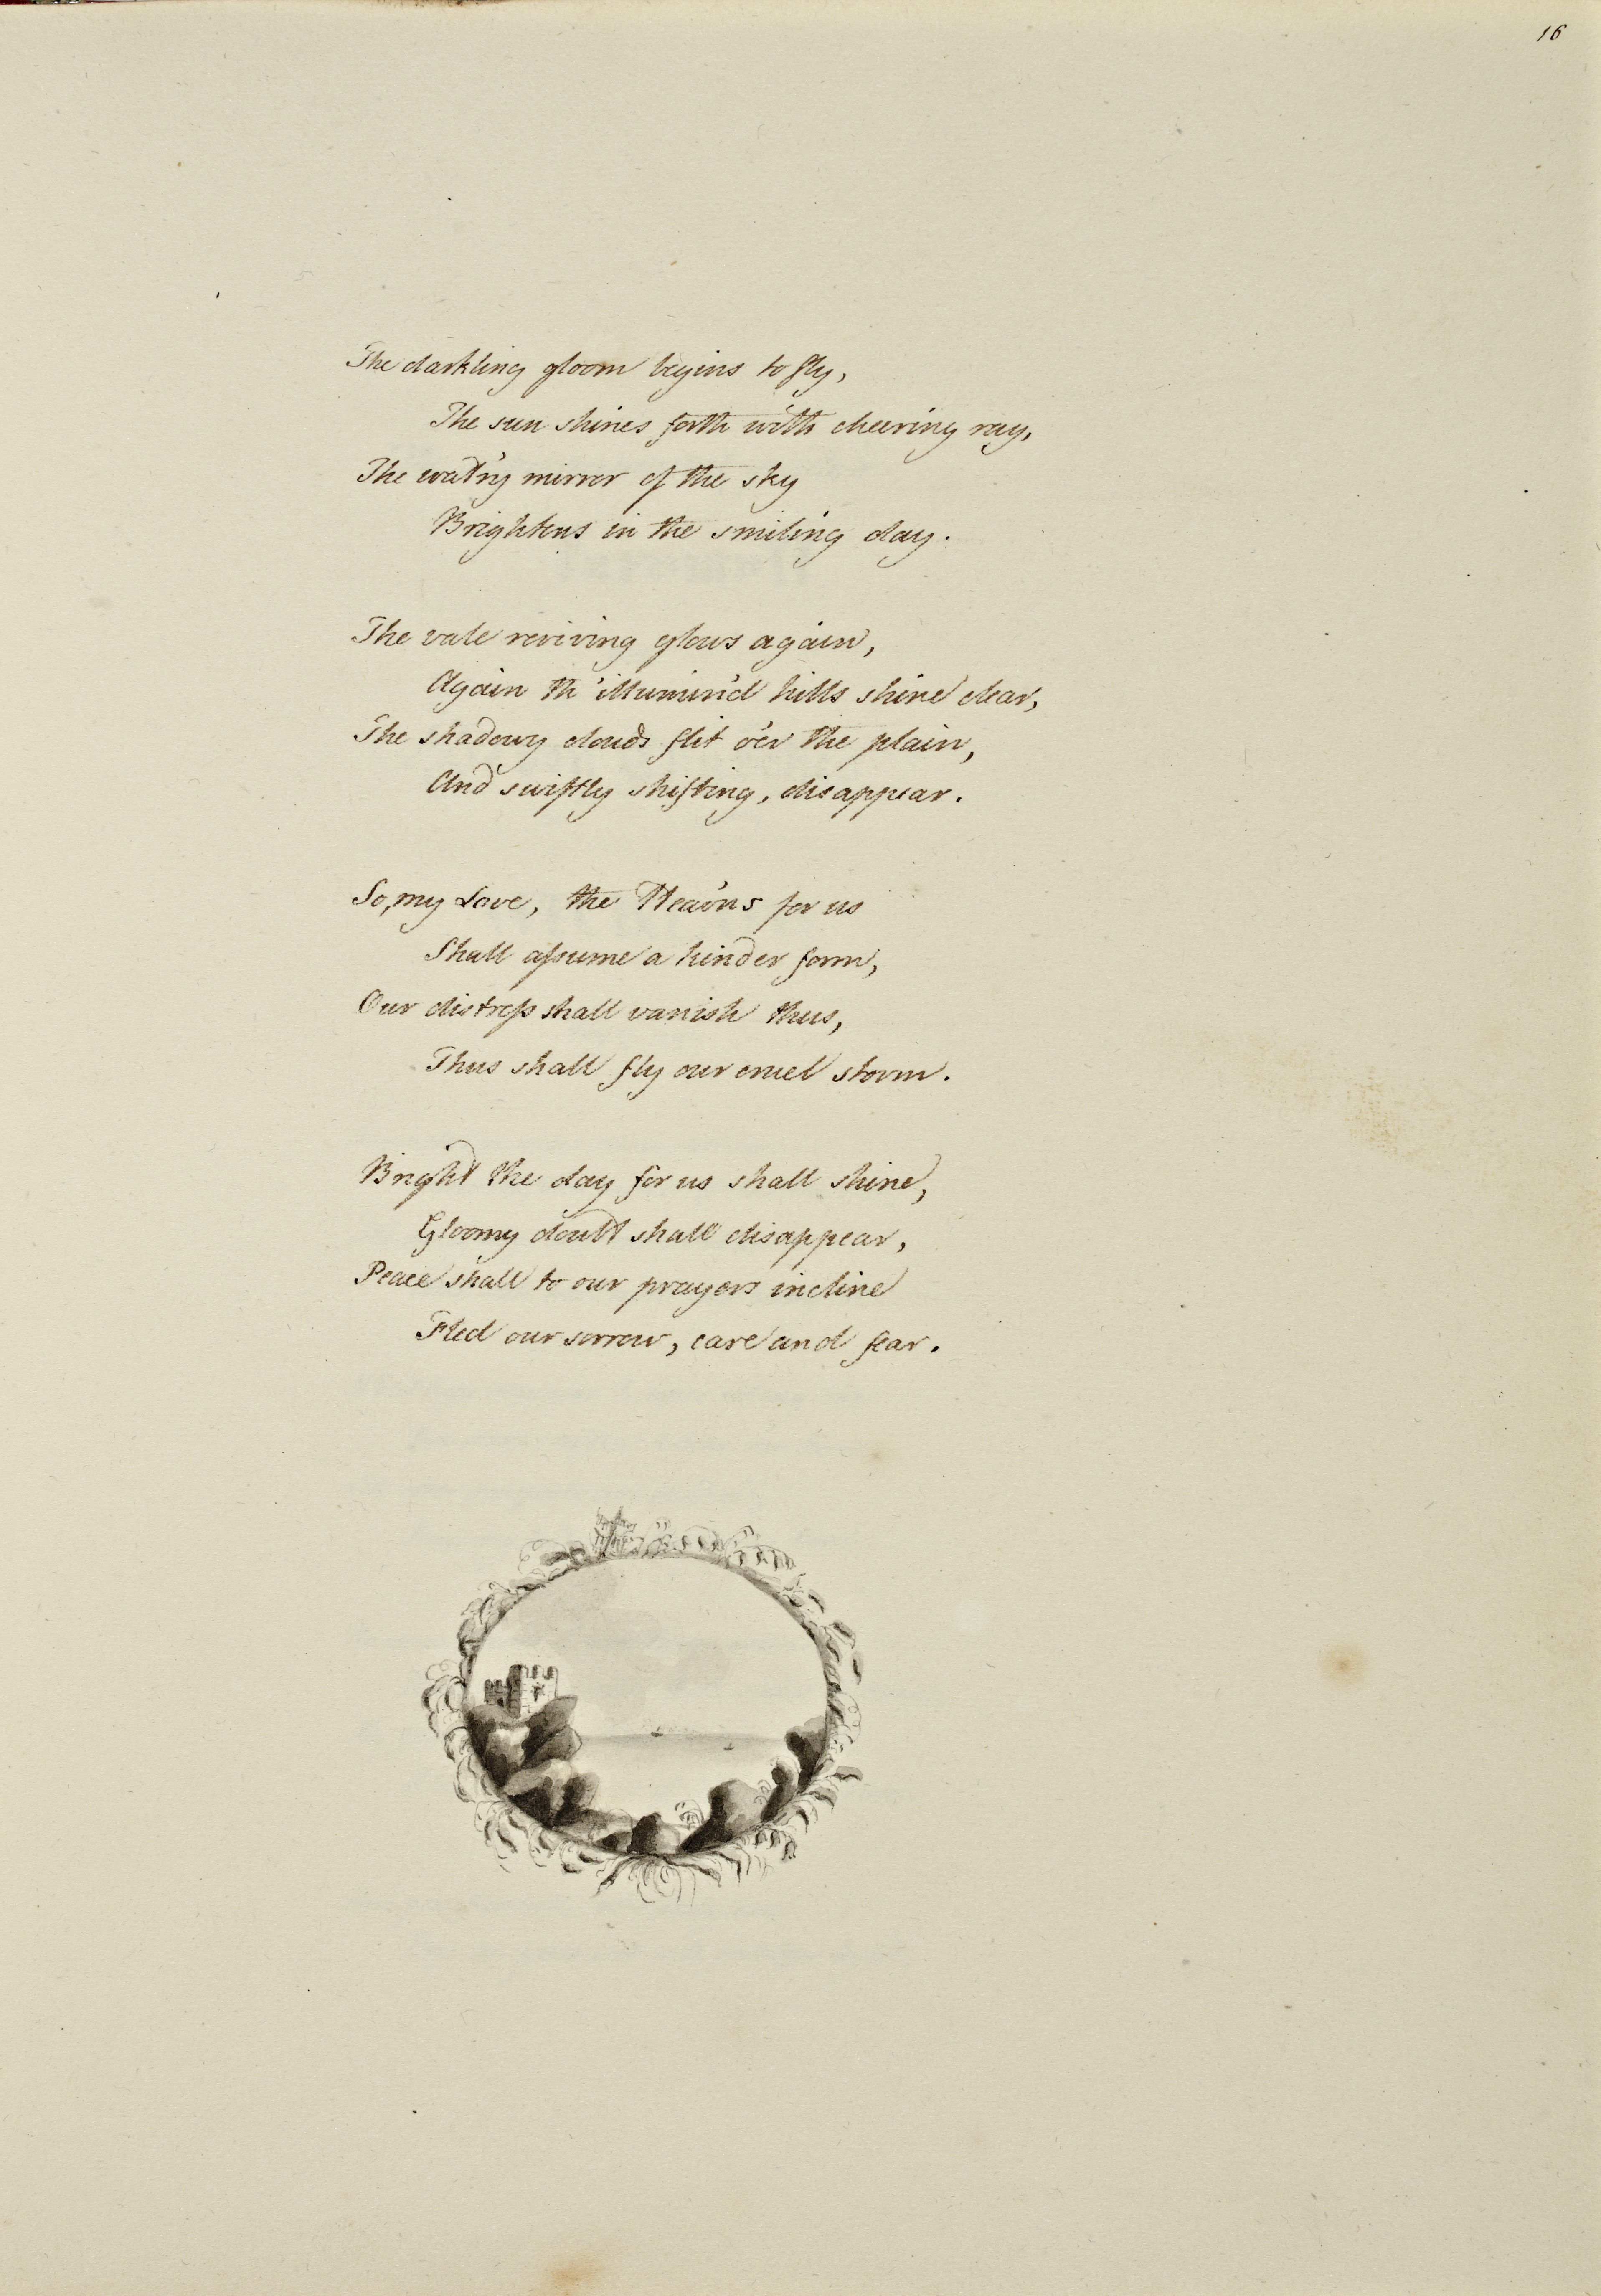 16
The darkling gloom begins to fly,
The sun shines forth with cheering ray,
The wat'ry mirror of the sky
Brightens in the smiling day.
The vale reviving glows again,
Again th' illumin'd hills shine clear,
The shadowy clouds flit o'er the plain,
And swiftly shifting, disappear.
So, my Love, the Heav'ns for us
Shall aſsume a kinder form,
Our distreſs shall vanish thus,
Thus shall fly our cruel storm.
Bright the day for us shall shine,
Gloomy doubt shall disappear,
Peace shall to our prayers incline
Fled our sorrow, care and fear.